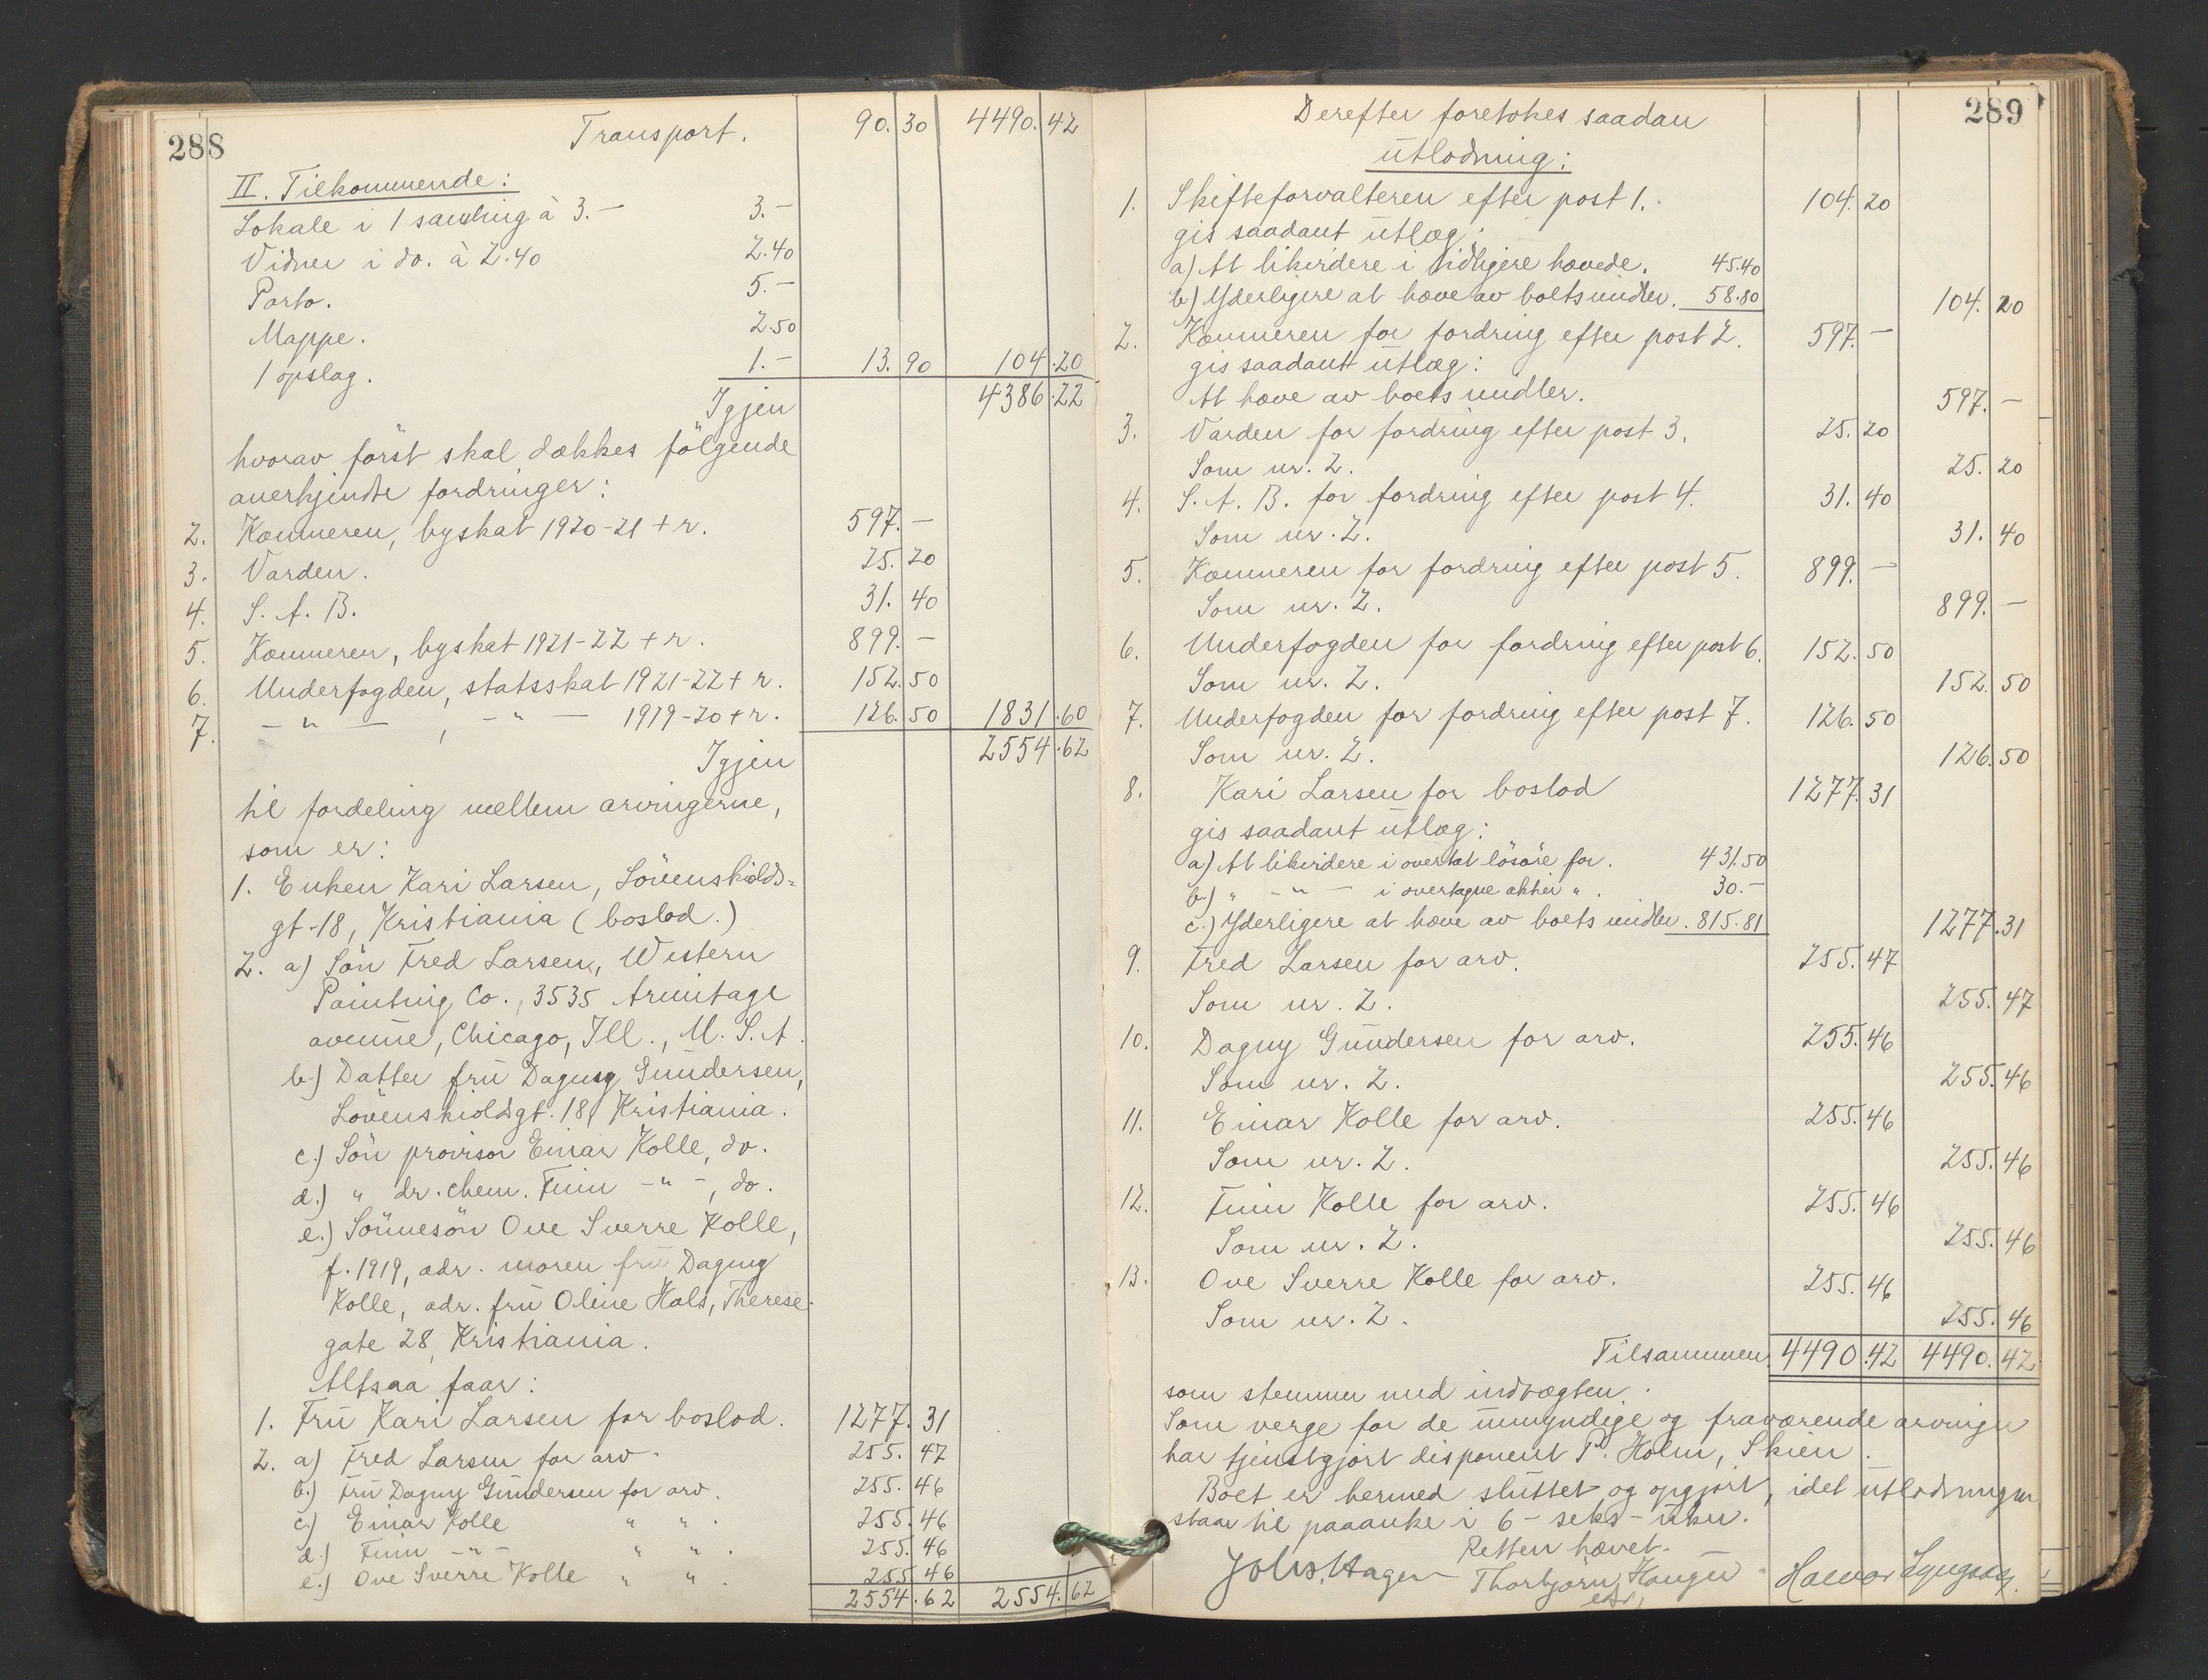 288
Transport. 90.30 4490.42
II. Tilkommende:
Lokale i 1 samling à 3.- 3.-
Vidner i do. à 2.40 2.40
Porto. 5.-
Mappe. 2.50
1 opslag. 1.- 13.90 104.20
Igjen 4386.22
hvorav först skal dækkes fölgende
anerkjendte fordringer:
2. Kæmneren, byskat 1920-21 + r. 597.-
3. Varden. 25.20
4. S. A. B. 31.40
5. Kæmneren, byskat 1921-22 + r. 899.-
6. Underfogden, statsskat 1921-22 + r. 152.50
7. - " - , - " - 1919-20 + r. 126.50 1831.60
Igjen 2554.62
til fordeling mellem arvingerne,
som er:
1. Enken Kari Larsen, Lövenskiolds-
gt. 18, Kristiania (boslod.)
2. a) Sön Fred Larsen, Western
Painting Co., 3535 Armitage
avenue, Chicago, Ill., U. S. A.
b) Datter fru Dagny Gundersen,
Lövenskioldsgt. 18, Kristiania.
c.) Sön provisor Einar Kolle, do.
d.) " dr. chem. Finn - " -, do.
e.) Sönnesön Ove Sverre Kolle,
f. 1919, adr. moren fru Dagny
Kolle, adr. fru Oline Hals, Therese-
gate 28, Kristiania.
Altsaa faar:
1. Fru Kari Larsen for boslod. 1277.31
2. a) Fred Larsen for arv. 255.47
b.) Fru Dagny Gundersen for arv. 255.46
c.) Einar Kolle " " . 255.46
d.) Finn - " - " " . 255.46
e.) Ove Sverre Kolle " " . 255.46
2554.62 2554.62
289
Derefter foretokes saadan
utlodning:
1. Skifteforvalteren efter post 1. 104.20
gis saadant utlæg:
a) At likvidere i tidligere hævede. 45.40
b) Yderligere at hæve av boets midler. 58.80 104.20
2. Kæmneren for fordring efter post 2. 597.-
gis saadant utlæg:
At hæve av boets midler. 597.-
3. Varden for fordring efter post 3. 25.20
Som nr. 2. 25.20
4. S. A. B. for fordring efter post 4. 31.40
Som nr. 2. 31.40
5. Kæmneren for fordring efter post 5. 899.-
Som nr. 2. 899.-
6. Underfogden for fordring efter post 6. 152.50
Som nr. 2. 152.50
7. Underfogden for fordring efter post 7. 126.50
Som nr. 2. 126.50
8. Kari Larsen for boslod 1277.31
gis saadant utlæg:
a) At likvidere i overtat lösöre for. 431.50
b.) " - " - i overtagne aktier " . 30.-
c.) Yderligere at hæve av boets midler. 815.81 1277.31
9. Fred Larsen for arv. 255.47
Som nr. 2. 255.47
10. Dagny Gundersen for arv. 255.46
Som nr. 2. 255.46
11. Einar Kolle for arv. 255.46
Som nr. 2. 255.46
12. Finn Kolle for arv. 255.46
Som nr. 2. 255.46
13. Ove Sverre Kolle for arv. 255.46
Som nr. 2. 255.46
Tilsammen 4490.42 4490.42
som stemmer med indtægten.
Som verge for de umyndige og fraværende arvinger
har tjenstgjort disponent P. Holm, Skien.
Boet er hermed sluttet og opgjort, idet utlodningen
staar til paaanke i 6 - seks - uker.
Retten hævet.
Johs. Hagen Thorbjörn Haugen Halvor